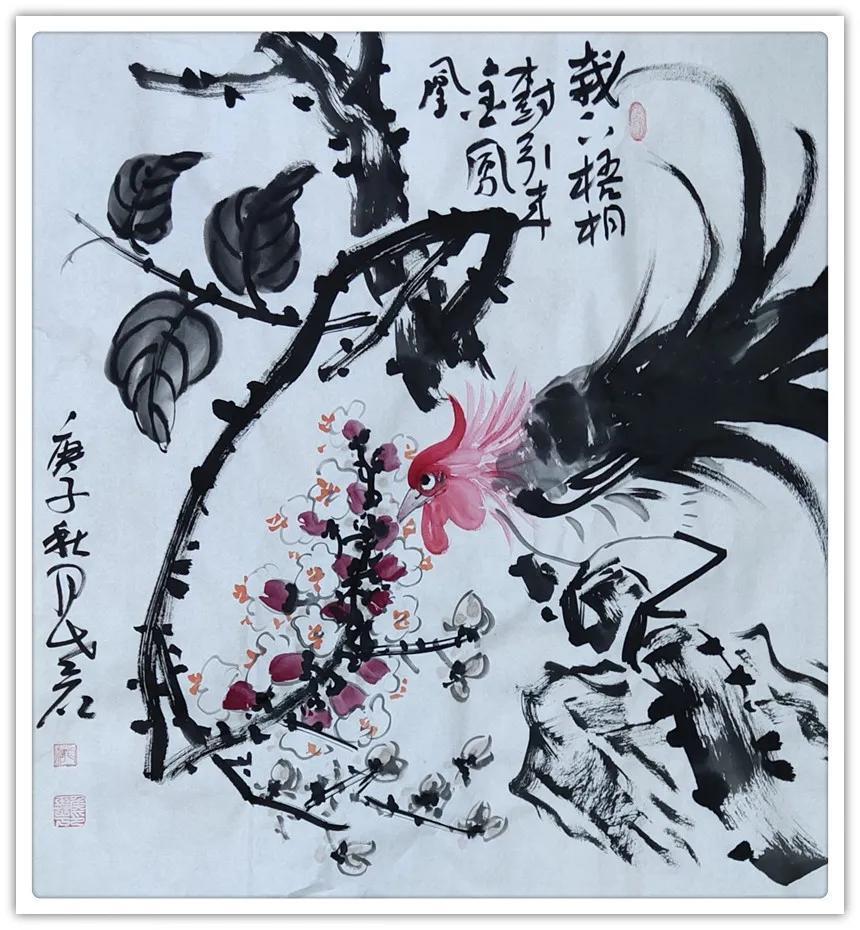 栽下梧桐
树引来
金凤
凰
庚子秋月